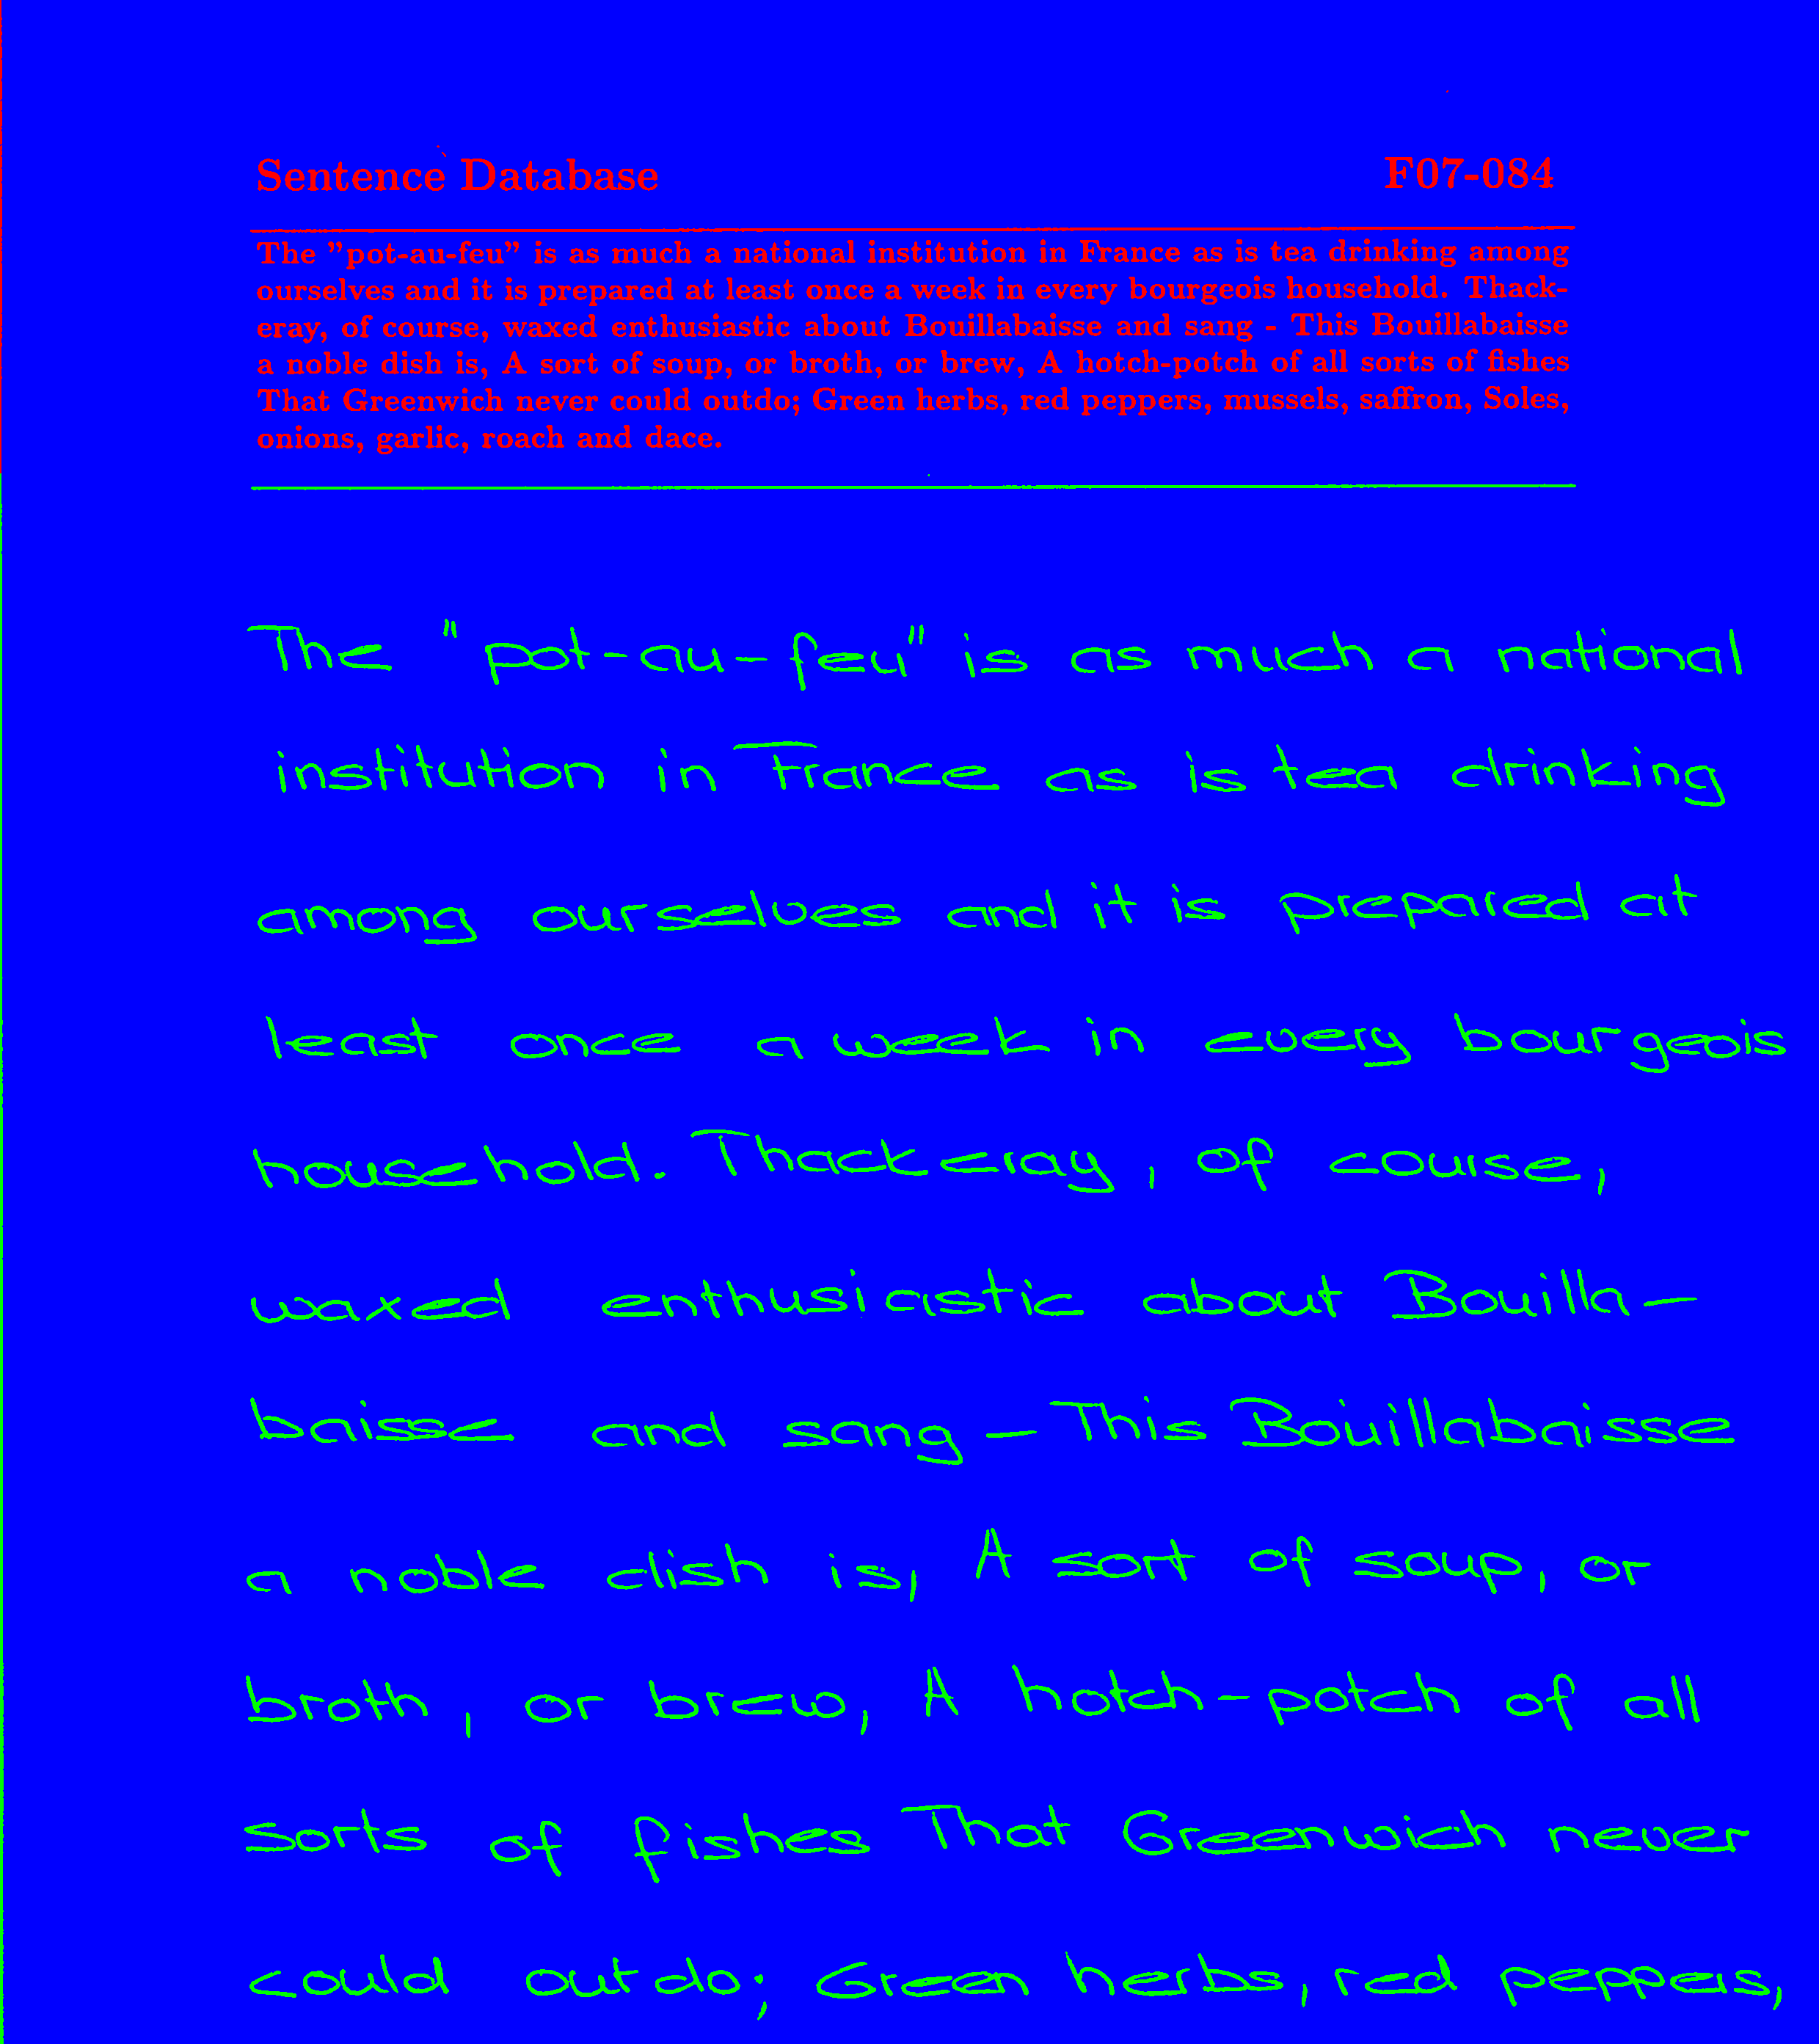 Sentence Database F07-084
The "pot-au-feu" is as much a national institution in France as is tea drinking among
ourselves and it is prepared at least once a week in every bourgeois household. Thack-
eray, of course, waxed enthusiastic about Bouillabaisse and sang - This Bouillabaisse
a noble dish is, A sort of soup, or broth, or brew, A hotch-potch of all sorts of fishes
That Greenwich never could outdo; Green herbs, red peppers, mussels, saffron, Soles,
onions, garlic, roach and dace.
The "pot-au-feu" is as much a national
institution in France as is tea drinking
among ourselves and it is prepared at
least once a week in every bourgeois
household. Thackeray, of course,
waxed enthusiastic about Bouilla-
baisse and sang - This Bouillabaisse
a noble dish is, A sort of soup, or
broth, or brew, A hotch-potch of all
sorts of fishes That Greenwich never
could outdo; Green herbs, red peppers,